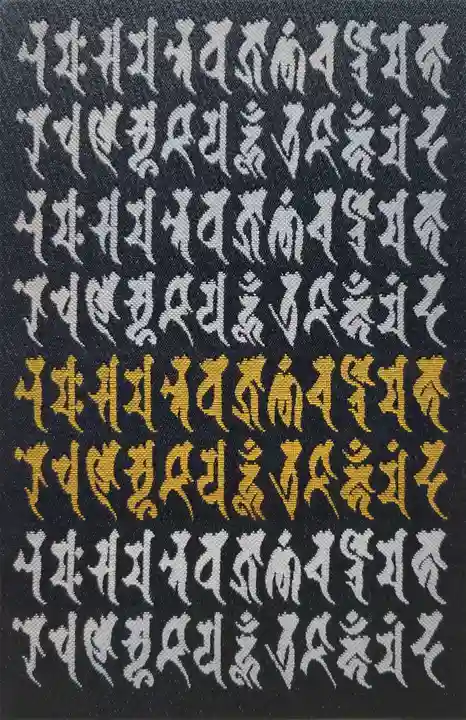 𑖡𑖦𑖾𑖭𑖦𑖡𑖿𑖝𑖪𑖕𑖿𑖨𑖜𑖯𑖽𑖓𑖜𑖿𑖚𑖦𑖮𑖯
𑖨𑖺𑖬𑖜𑖭𑖿𑖣𑖺𑖘𑖧𑖮𑖳𑖽𑖝𑖿𑖨𑖘𑖮𑖯𑖽𑖦𑖯𑖽
𑖡𑖦𑖾𑖭𑖦𑖡𑖿𑖝𑖪𑖕𑖿𑖨𑖜𑖯𑖽𑖓𑖜𑖿𑖚𑖦𑖮𑖯
𑖨𑖺𑖬𑖜𑖭𑖿𑖣𑖺𑖘𑖧𑖮𑖳𑖽𑖝𑖿𑖨𑖘𑖮𑖯𑖽𑖦𑖯𑖽
𑖡𑖦𑖾𑖭𑖦𑖡𑖿𑖝𑖪𑖕𑖿𑖨𑖜𑖯𑖽𑖓𑖜𑖿𑖚𑖦𑖮𑖯
𑖨𑖺𑖬𑖜𑖭𑖿𑖣𑖺𑖘𑖧𑖮𑖳𑖽𑖝𑖿𑖨𑖘𑖮𑖯𑖽𑖦𑖯𑖽
𑖡𑖦𑖾𑖭𑖦𑖡𑖿𑖝𑖪𑖕𑖿𑖨𑖜𑖯𑖽𑖓𑖜𑖿𑖚𑖦𑖮𑖯
𑖨𑖺𑖬𑖜𑖭𑖿𑖣𑖺𑖘𑖧𑖮𑖳𑖽𑖝𑖿𑖨𑖘𑖮𑖯𑖽𑖦𑖯𑖽